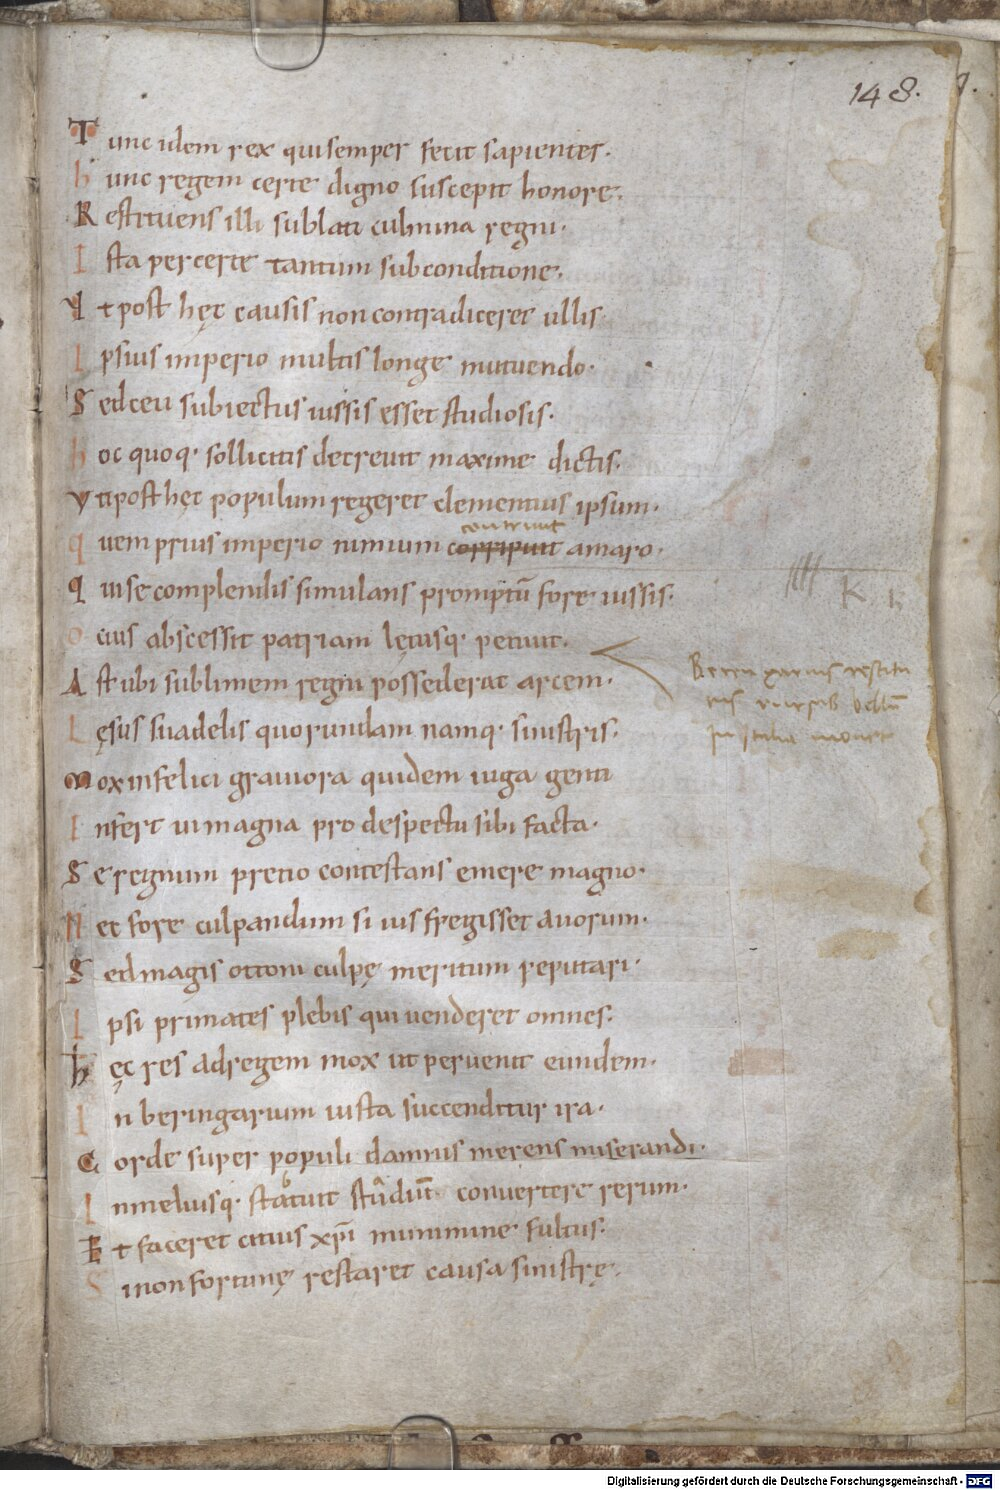 148.
Tunc idem rex qui semper fecit sapienter.
hunc regem certe digno suscepit honore.
Restituens illi sublati culmina regni.
Ista per certe tantum sub conditione.
Vt post hęc causis non contradiceret ullis.
Ipsius imperio multis longe metuendo.
Sed ceu subiectus iussis esset studiosis.
hoc quoq. sollicitis decreuit maxime dictis.
Vt post hęc populum regeret clementius ipsum.
contriuit
quem prius imperio nimium corripuit amaro.
qui se complendis simulans promptū fore iussis.
ocius abscessit patriam lętusq. petiuit.
Ast ubi sublimem regni possederat arcem.
Lęsus suadelis quorundam namq. sinistris.
mox infelici grauiora quidem iuga genti
Infert ui magna pro despectu sibi facta.
Se regnum precio contestans emere magno.
Nec fore culpandum si ius fregisset auorum.
Sed magis ottoni culpę meritum reputari.
Ipsi primates plebis qui uenderet omnes.
hęc res ad regem mox ut peruenit eundem.
In beringarium iusta succenditur ira.
Corde super populi damnis merens miserandi.
In meliusq. statuit studiū conuertere rerum.
Et faceret citius xp̄i munimine fultus.
Si non fortunę restaret causa sinistrę.
K
restitu
tus rursus bellū
in italia mouet
Digitalisierung gefördert durch die Deutsche Forschungsgemeinschaft - DFG